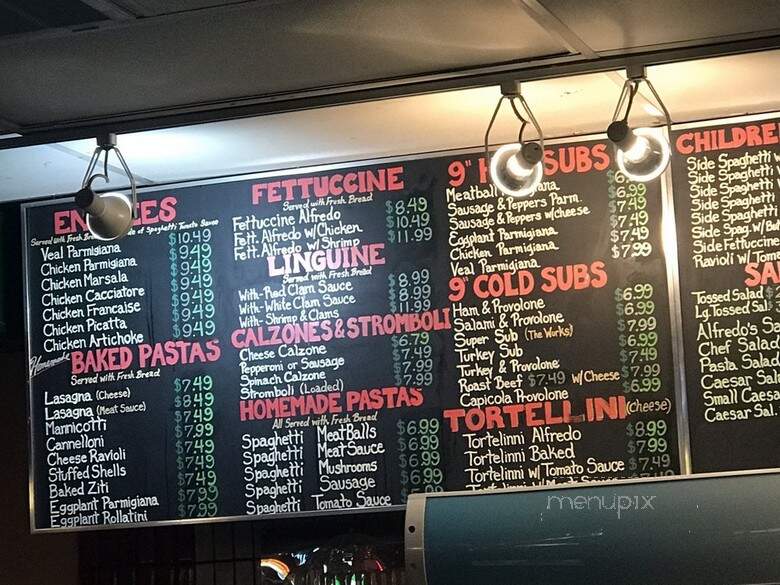 ENTREES
Served with Fresh Side of Spaghetti Tomato Sauce
Veal Parmigiana $10.49
Chicken Parmigiana $9.49
Chicken Marsala $9.49
Chicken Cacciatore $9.49
Chicken Francaise $9.49
Chicken Picatta $9.49
Chicken Artichoke $9.49
Homemade BAKED PASTAS
Served with Fresh Bread
Lasagna (Cheese) $7.49
Lasagna (Meat Sauce) $8.49
Mannicotti $7.49
Cannelloni $7.99
Cheese Ravioli $7.49
Stuffed Shells $7.49
Baked Ziti $7.49
Eggplant Parmigiana $7.99
Eggplant Rollatini $7.99
FETTUCCINE
Served with Fresh Bread
Fettuccine Alfredo $8.49
Fett. Alfredo w/ Chicken $10.49
Fett. Alfredo w/ Shrimp $11.99
LINGUINE
Served with Fresh Bread
With-Red Clam Sauce $8.99
With-White Clam Sauce $8.99
With-Shrimp & Clams $11.99
CALZONES & STROMBOLI
Cheese Calzone $6.79
Pepperoni or Sausage $7.49
Spinach Calzone $7.99
Stromboli (Loaded) $7.99
HOMEMADE PASTAS
All Served with Fresh Bread
Spaghetti MeatBalls $6.99
Spaghetti MeatSauce $6.99
Spaghetti Mushrooms $6.99
Spaghetti Sausage $6.99
Spaghetti Tomato Sauce
9" SUBS
Meatball $6.99
Sausage & Peppers Parm. $7.49
Sausage & Peppers w/cheese $7.49
Eggplant Parmigiana $7.49
Chicken Parmigiana $7.49
Veal Parmigiana $7.99
9" COLD SUBS
Ham & Provolone $6.99
Salami & Provolone $6.99
Super Sub (The Works) $7.99
Turkey Sub $6.99
Turkey & Provolone $7.49
Roast Beef $7.49 w/ Cheese $7.99
Capicola Provolone $6.99
TORTELLINI (Cheese)
Tortelinni Alfredo $8.99
Tortelinni Baked $7.99
Tortelinni w/ Tomato Sauce $7.49
CHILDRE
Side Spaghetti
Side Spaghetti w
Side Spaghetti w
Side Spaghetti
Side Spaghetti
Side Spag. w/ Bu
Side Fettuccine
Ravioli w/ Tom
SA
Tossed Salad $2
Lg. Tossed Sal
Alfredo's S
Chef Salad
Pasta Salad
Caesar Sal
Small Caesa
Caesar Sal
menupix